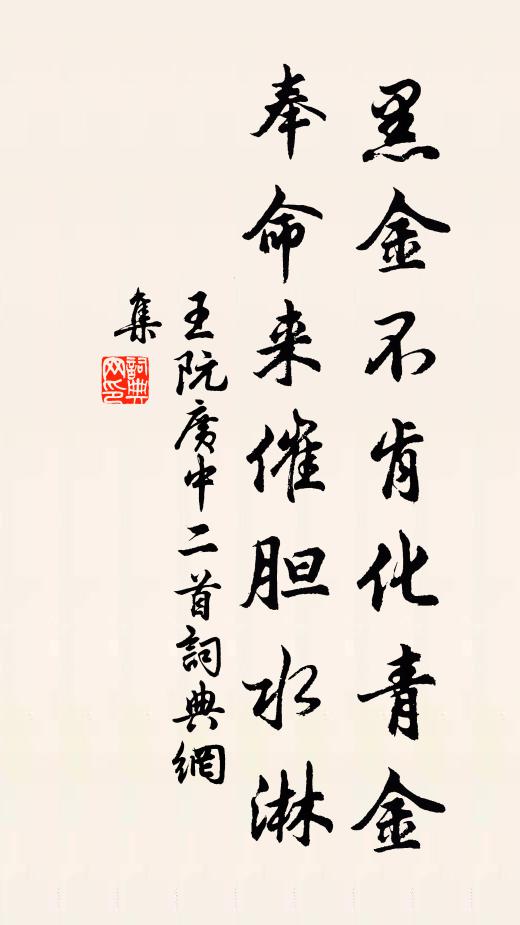 黑金不肯化青金
奉命来催胆水淋
王阮廣中二首詞典網
集
詞典
网印